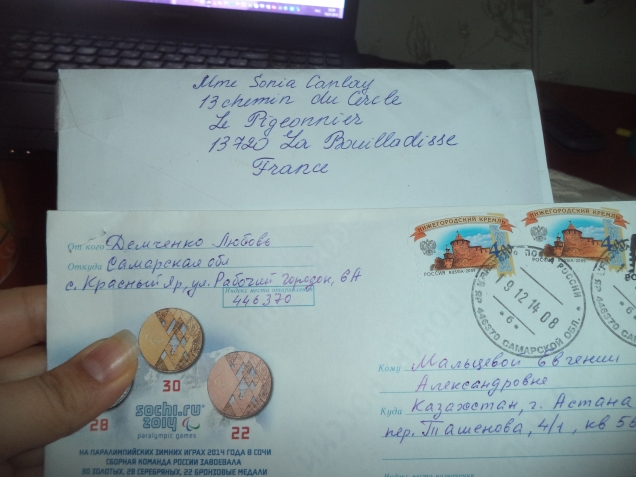 Mme Sonia Canlay
13 chemin du Cercle
Le Pigeonnier
13720 La Bouilladisse
France
От кого Демченко Любовь
Откуда Самарская обл
с. Красный Яр, ул. Рабочий городок, 6А
446370
Индекс места отправления
НИЖЕГОРОДСКИЙ КРЕМЛЬ
РОССИЯ ROSSIA 2009
НИЖЕГОРОДСКИЙ КРЕМЛЬ
РОССИЯ ROSSIA 2009
9 12 14 08
-6-
446370 САМАРСКОЙ ОБЛ.
Кому Мальцевой Евгении
Александровне
Куда Казахстан, г. Астана
пер. Ташенова, 4/1, кв 56
28
30
22
sochi.ru
2014
paralympic games
НА ПАРАЛИМПИЙСКИХ ЗИМНИХ ИГРАХ 2014 ГОДА В СОЧИ
СБОРНАЯ КОМАНДА РОССИИ ЗАВОЕВАЛА
30 ЗОЛОТЫХ, 28 СЕРЕБРЯНЫХ, 22 БРОНЗОВЫЕ МЕДАЛИ